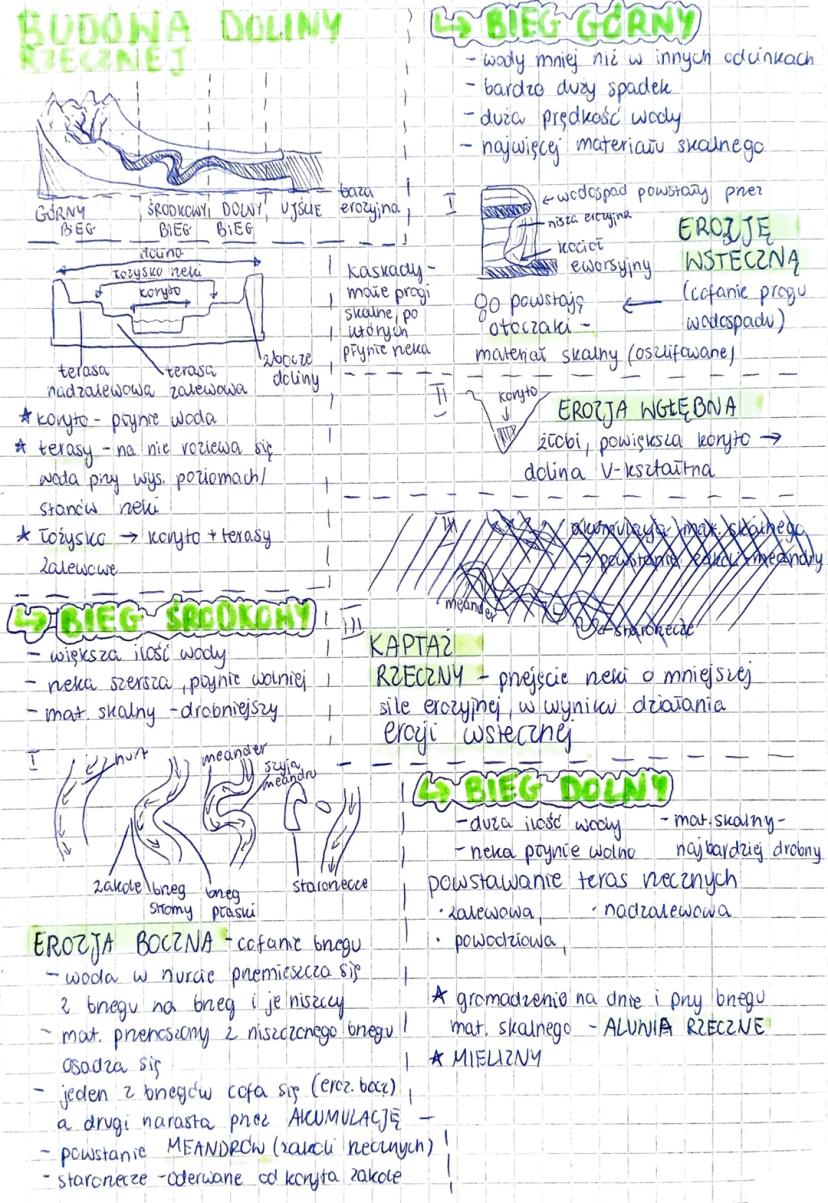 BUDOWA DOLINY
RZECZNEJ
GÓRNY
BIEG
ŚRODKOWY
BIEG
DOLNY
BIEG
UJŚCIE
baza
erozyjna
dolina
łożysko rzeki
koryto
terasa
nadzalewowa
terasa
zalewowa
zbocze
doliny
Kaskady-
małe progi
skalne, po
których
płynie rzeka
★ koryto - płynie woda
★ terasy - na nie rozlewa się
woda przy wys. poziomach/
stanów rzeki
★ łożysko → koryto + terasy
zalewowe
↳ BIEG ŚRODKOWY
- większa ilość wody
- rzeka szersza, płynie wolniej
- mat. skalny - drobniejszy
I
nurt
meander
szyja
meandru
zakole
brzeg
stromy
brzeg
płaski
starorzecze
EROZJA BOCZNA - cofanie brzegu
- woda w nurcie przemieszcza się
z brzegu na brzeg i je niszczy
- mat. przenoszony z niszczonego brzegu
osadza się
- jeden z brzegów cofa się (eroz. bocz)
a drugi narasta przez AKUMULACJĘ
- powstanie MEANDRÓW (zakoli rzecznych)
- starorzecze - oderwane od koryta zakole
↳ BIEG GÓRNY
- wody mniej niż w innych odcinkach
- bardzo duży spadek
- duża prędkość wody
- najwięcej materiału skalnego
I
← wodospad powstały przez
nisza erozyjna
kocioł
eworsyjny
EROZJĘ
WSTECZNĄ
(cofanie progu
wodospadu)
go powstają
otoczaki -
materiał skalny (oszlifowane)
II
koryto
EROZJA WGŁĘBNA
żłobi, powiększa koryto →
dolina V-kształtna
III
akumulacja mat. skalnego
→ powstanie zakoli meandry
meander
starorzecze
III
KAPTAŻ
RZECZNY - przejście rzeki o mniejszej
sile erozyjnej, w wyniku działania
erozji wstecznej
↳ BIEG DOLNY
- duża ilość wody
- rzeka płynie wolno
- mat. skalny -
najbardziej drobny
powstawanie teras rzecznych
· zalewowa, · nadzalewowa
· powodziowa,
★ gromadzenie na dnie i przy brzegu
mat. skalnego - ALUWIA RZECZNE
★ MIELIZNY